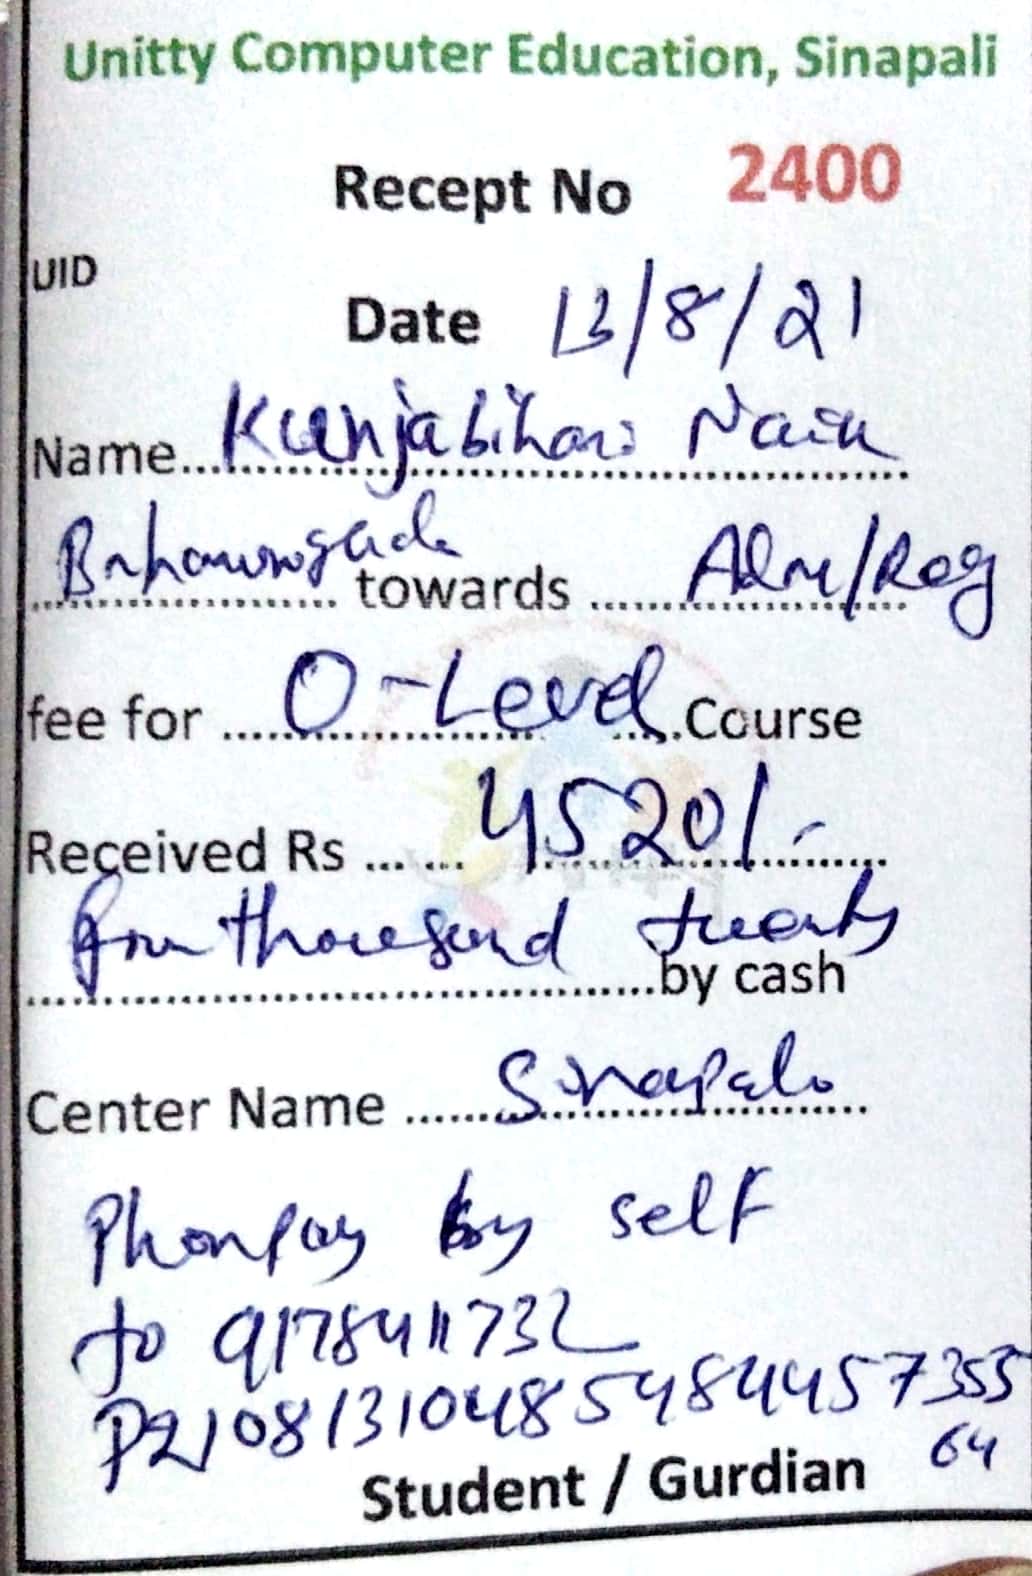 Unitty Computer Education, Sinapali
Recept No 2400
UID
Date 13/8/21
Name... Kunjabihari Naik
towards ... Adm/Reg
fee for ... O-Level ... Course
Received Rs ... ... 4520/-
four thousand twenty
by cash
Center Name ... Sinapali
Phonpay by self
to 9178411732
P2108131048548445735564
Student / Gurdian